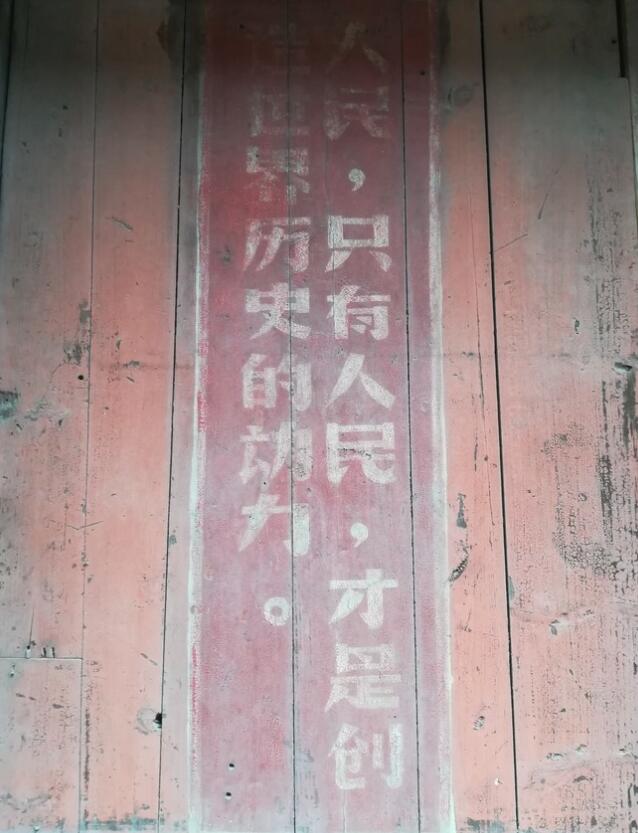 人民，只有人民，才是创
造世界历史的动力。